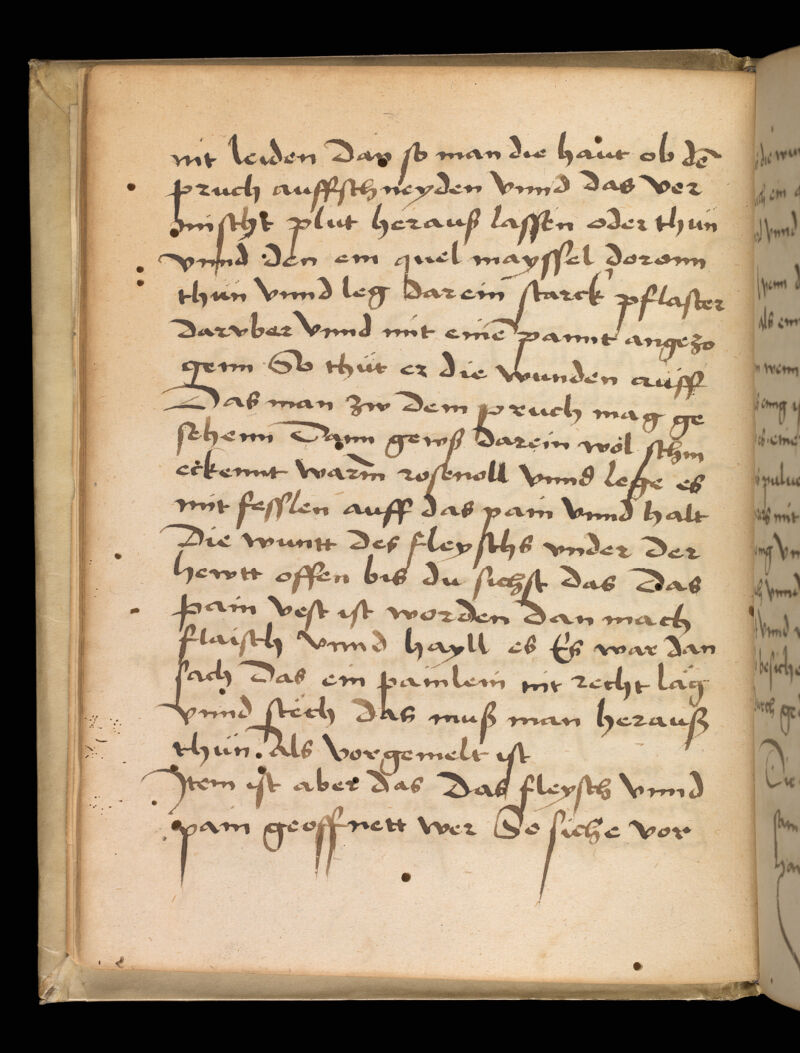 nit leiden Dan so man die haut ob dē
pruch auffschneyden vnnd das ver
mischt plut herauß lassen oder thun
vnnd den ein quel mayssel doronn
thun vnnd leg darein starck pflaster
darvber vnnd mit einē pannt angezo
genn So thut er die wunden auff
Das man zw dem pruch mag ge
sehenn Dann gewß darein wol schm
eckennt warm rosenoll vnnd lege es
mit fesslen auff das pain vnnd halt
Die wuntt des fleyschs vnder der
hewtt offen bis du sichst das Das
pain vest ist worden dan mach
flaisch vnnd hayll es Es war dan
sach Das ein painlein nit recht lag
vnnd stech das muß man herauß
thun. Als vorgemelt ist
Item ist aber das Das fleysch vnnd
pain geoffnett wer So siche vor